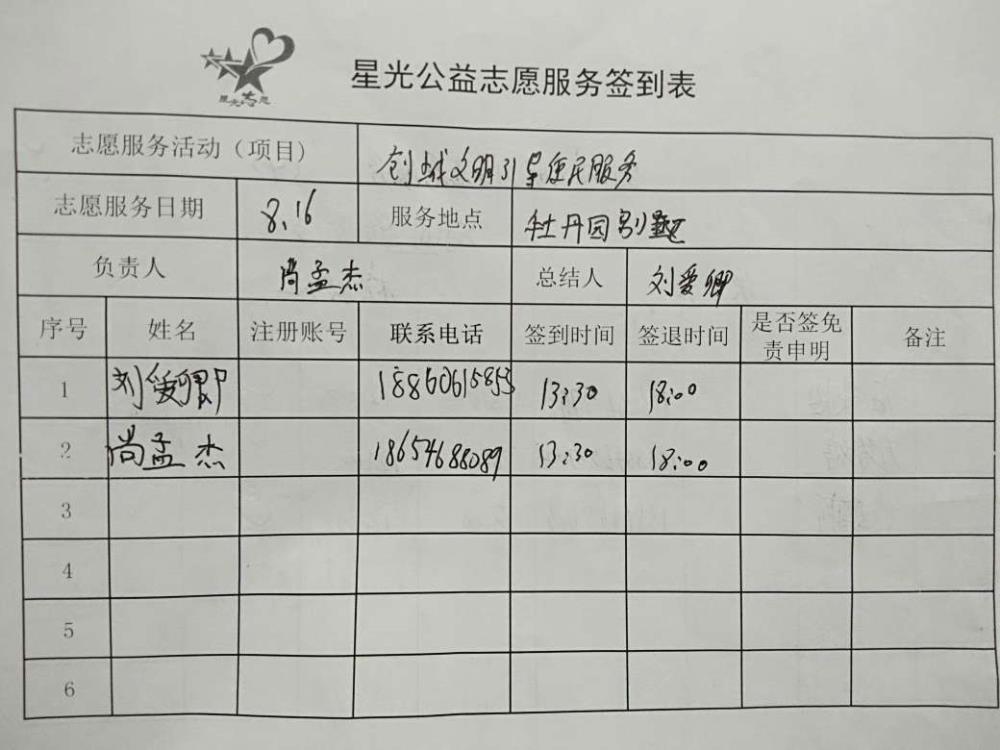 星光志愿
星光公益志愿服务签到表
志愿服务活动（项目） 创城文明引导便民服务
志愿服务日期 8.16 服务地点 牡丹园别墅
负责人 尚孟杰 总结人 刘爱卿
序号 姓名 注册账号 联系电话 签到时间 签退时间 是否签免责申明 备注
1 刘爱卿 18860615853 13:30 18:00
2 尚孟杰 18654688089 13:30 18:00
3
4
5
6